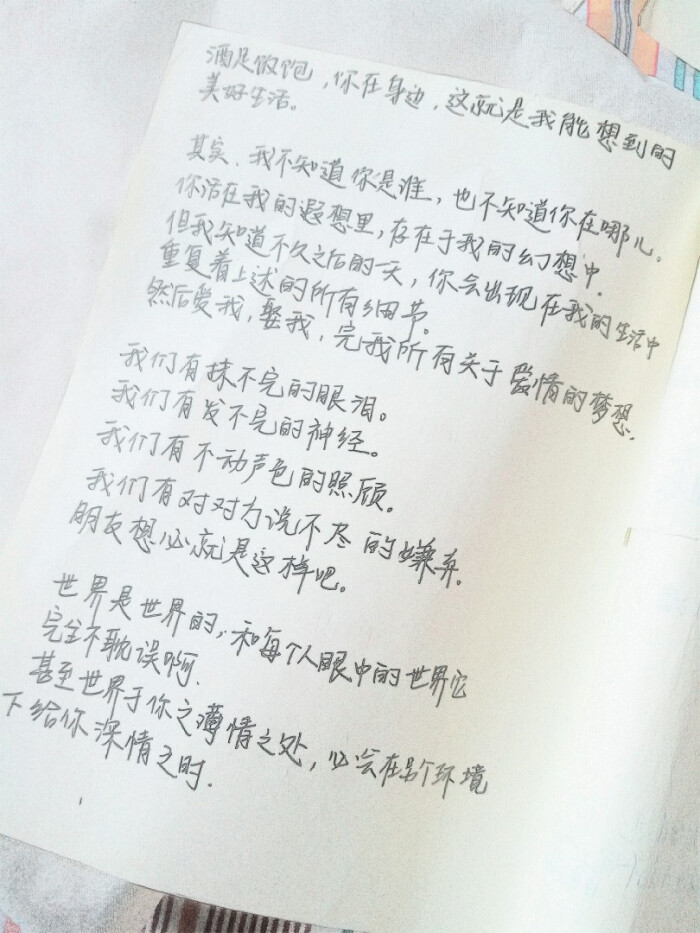 酒足饭饱，你在身边，这就是我能想到的
美好生活。
其实，我不知道你是谁，也不知道你在哪儿。
你活在我的遐想里，存在于我的幻想中.
但我知道不久之后的一天，你会出现在我的生活中
重复着上述的所有细节。
然后爱我，娶我，完我所有关于爱情的梦想.
我们有抹不完的眼泪。
我们有发不完的神经。
我们有不动声色的照顾。
我们有对对方说不尽的嫌弃.
朋友想必就是这样吧。
世界是世界的，和每个人眼中的世界它
完全不耽误啊.
甚至世界于你之薄情之处，必会在另个环境
下给你深情之时.